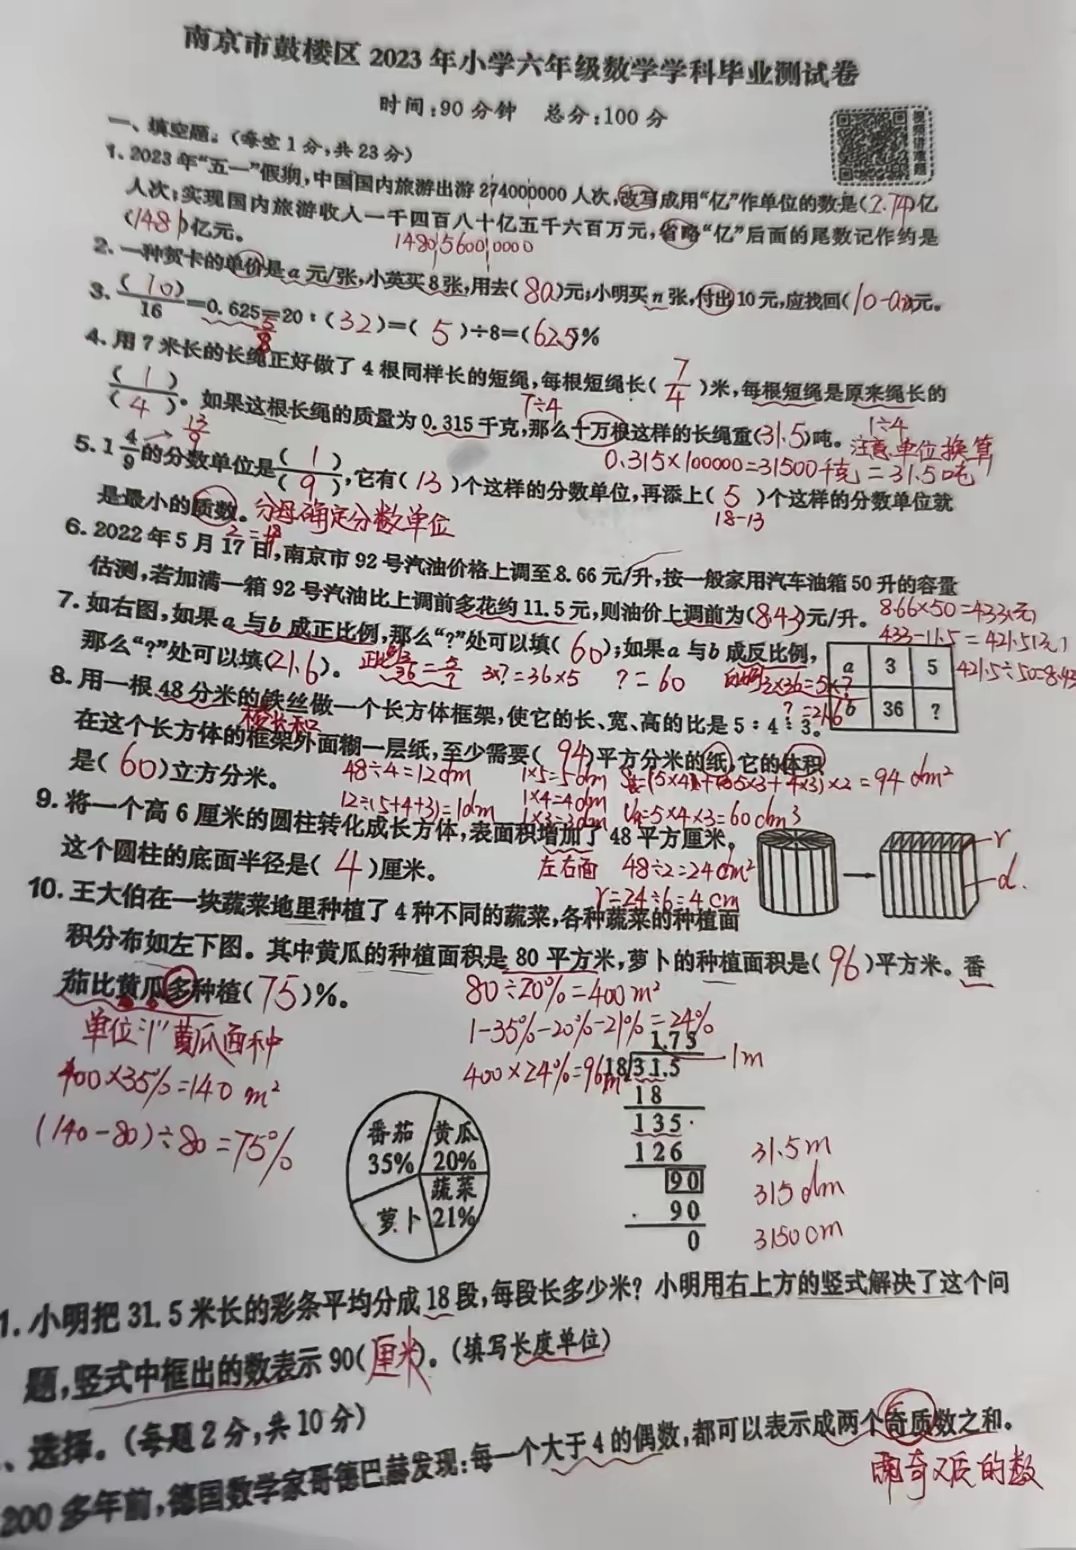 南京市鼓楼区2023年小学六年级数学学科毕业测试卷
时间:90分钟 总分:100分
视频讲难题
一、填空题。(每空1分,共23分)
1. 2023年“五一”假期,中国国内旅游出游274000000人次,改写成用“亿”作单位的数是(2.74)亿
人次;实现国内旅游收入一千四百八十亿五千六百万元,省略“亿”后面的尾数记作约是
(1481)亿元。
1480 5600 0000
2. 一种贺卡的单价是a元/张,小英买8张,用去(8a)元;小明买n张,付出10元,应找回(10-an)元。
3. (10)/16=0.625=20:(32)=(5)÷8=(62.5)%
5/8
4. 用7米长的长绳正好做了4根同样长的短绳,每根短绳长(7/4)米,每根短绳是原来绳长的
7÷4
1÷4
(1)/(4)。如果这根长绳的质量为0.315千克,那么十万根这样的长绳重(31.5)吨。注意单位换算
0.315×100000=31500千克=31.5吨
13/9
5. 1 4/9的分数单位是(1)/(9),它有(13)个这样的分数单位,再添上(5)个这样的分数单位就
18-13
是最小的质数。分母确定分数单位
6. 2022年5月17日,南京市92号汽油价格上调至8.66元/升,按一般家用汽车油箱50升的容量
估测,若加满一箱92号汽油比上调前多花约11.5元,则油价上调前为(8.43)元/升。
8.66×50=433(元)
433-11.5=421.5(元)
421.5÷50=8.43
7. 如右图,如果a与b成正比例,那么“?”处可以填(60);如果a与b成反比例,
那么“?”处可以填(21.6)。
3/36=5/? 3×?=36×5 ?=60
3×36=5×?
?=21.6
a 3 5
b 36 ?
8. 用一根48分米的铁丝做一个长方体框架,使它的长、宽、高的比是5:4:3。
棱长和
在这个长方体的框架外面糊一层纸,至少需要(94)平方分米的纸,它的体积
是(60)立方分米。
48÷4=12dm
12÷(5+4+3)=1dm
1×5=5dm
1×4=4dm
1×3=3dm
S=(5×4+5×3+4×3)×2=94dm²
V=5×4×3=60dm³
9. 将一个高6厘米的圆柱转化成长方体,表面积增加了48平方厘米,
这个圆柱的底面半径是(4)厘米。
左右面 48÷2=24cm²
r=24÷6=4cm
r
d
10. 王大伯在一块蔬菜地里种植了4种不同的蔬菜,各种蔬菜的种植面
积分布如左下图。其中黄瓜的种植面积是80平方米,萝卜的种植面积是(96)平方米。番
茄比黄瓜多种植(75)%。
80÷20%=400m²
1-35%-20%-21%=24%
400×24%=96m²
单位“1”黄瓜面种
400×35%=140m²
(140-80)÷80=75%
番茄 35%
黄瓜 20%
蔬菜 21%
萝卜
1.75
18 31.5
18
135
126
90
90
0
1m
31.5m
315dm
3150cm
1. 小明把31.5米长的彩条平均分成18段,每段长多少米?小明用右上方的竖式解决了这个问
题,竖式中框出的数表示90(厘米)。(填写长度单位)
、选择。(每题2分,共10分)
200多年前,德国数学家哥德巴赫发现:每一个大于4的偶数,都可以表示成两个奇质数之和。
既奇又质的数